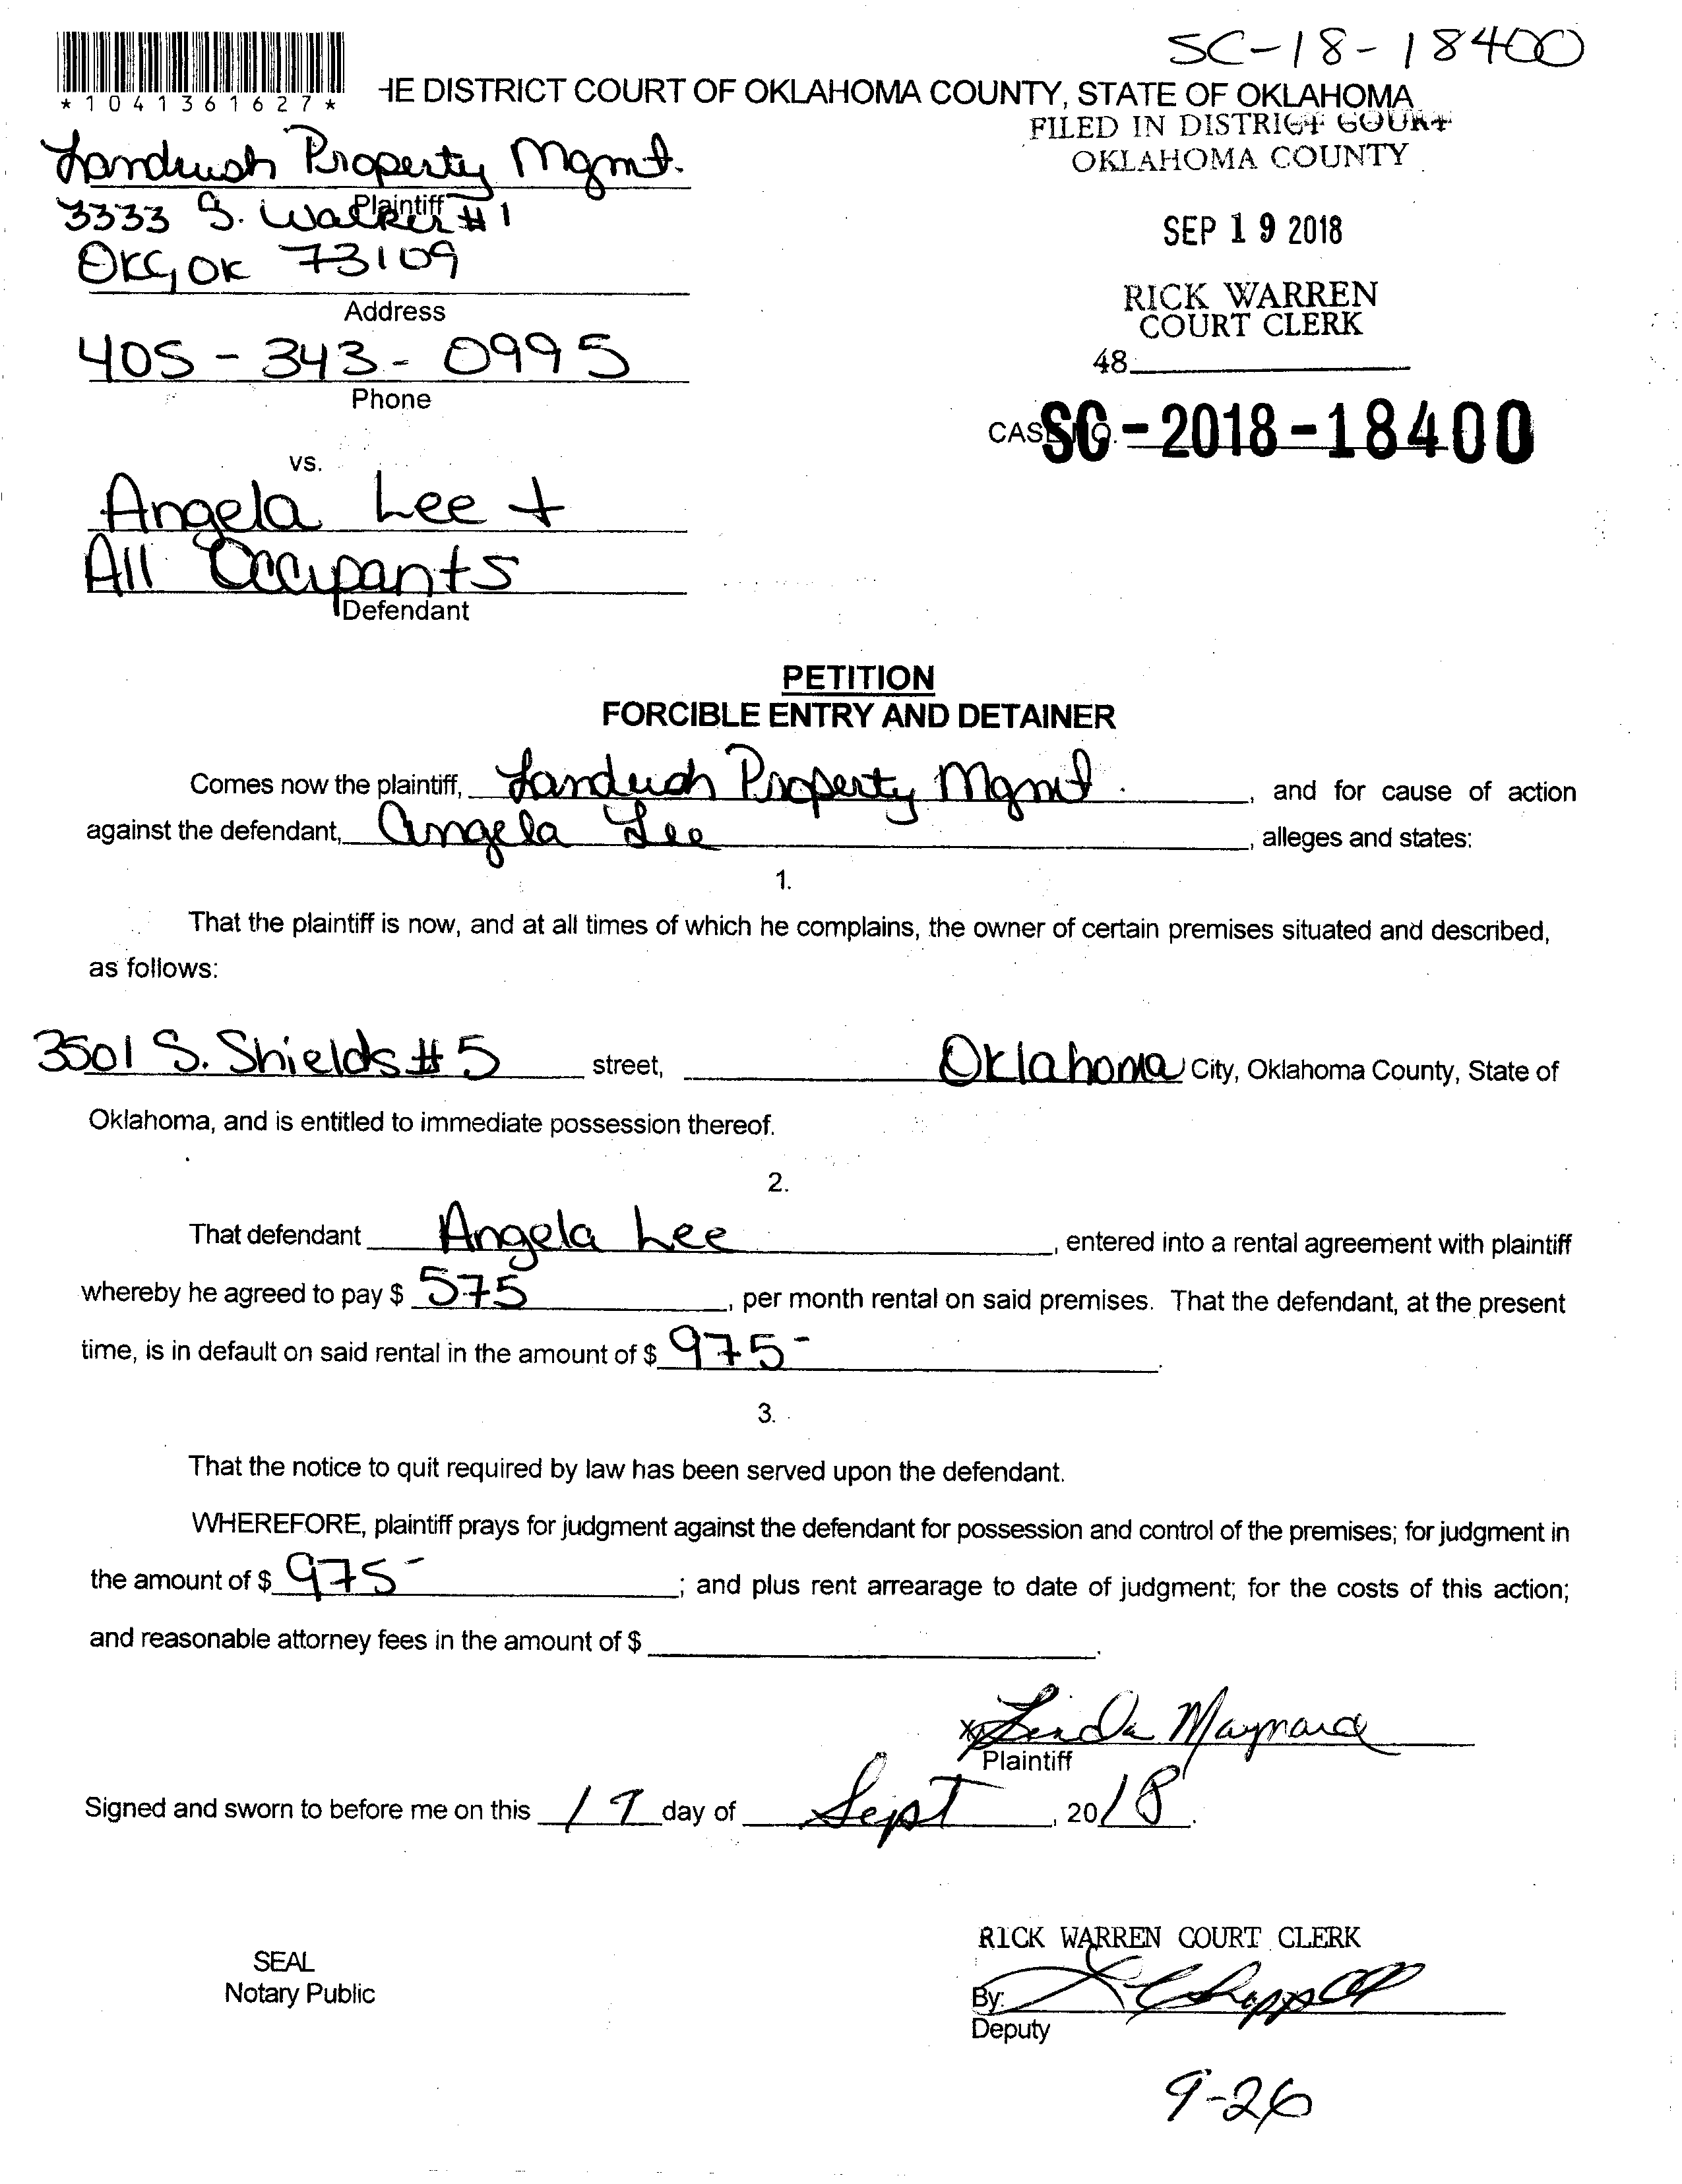 SC-18-18400
*1041361627*
HE DISTRICT COURT OF OKLAHOMA COUNTY, STATE OF OKLAHOMA
FILED IN DISTRICT COURT
OKLAHOMA COUNTY
Property Mgmt.
Plaintiff
3333 S. Walker #1
OKC, OK 73109
Address
SEP 19 2018
RICK WARREN
COURT CLERK
405-343-0995
Phone
48
CASE NO. SC-2018-18400
vs.
Angela Lee +
All Occupants
Defendant
PETITION
FORCIBLE ENTRY AND DETAINER
Comes now the plaintiff, Property Mgmt. , and for cause of action
against the defendant, Angela Lee , alleges and states:
1.
That the plaintiff is now, and at all times of which he complains, the owner of certain premises situated and described,
as follows:
3501 S. Shields #5 street, Oklahoma City, Oklahoma County, State of
Oklahoma, and is entitled to immediate possession thereof.
2.
That defendant Angela Lee , entered into a rental agreement with plaintiff
whereby he agreed to pay $ 575 , per month rental on said premises. That the defendant, at the present
time, is in default on said rental in the amount of $ 975- .
3.
That the notice to quit required by law has been served upon the defendant.
WHEREFORE, plaintiff prays for judgment against the defendant for possession and control of the premises; for judgment in
the amount of $ 975- ; and plus rent arrearage to date of judgment; for the costs of this action;
and reasonable attorney fees in the amount of $ .
x Linda Maynard
Plaintiff
Signed and sworn to before me on this 19 day of Sept , 2018.
RICK WARREN COURT CLERK
SEAL
Notary Public
By:
Deputy
9-26